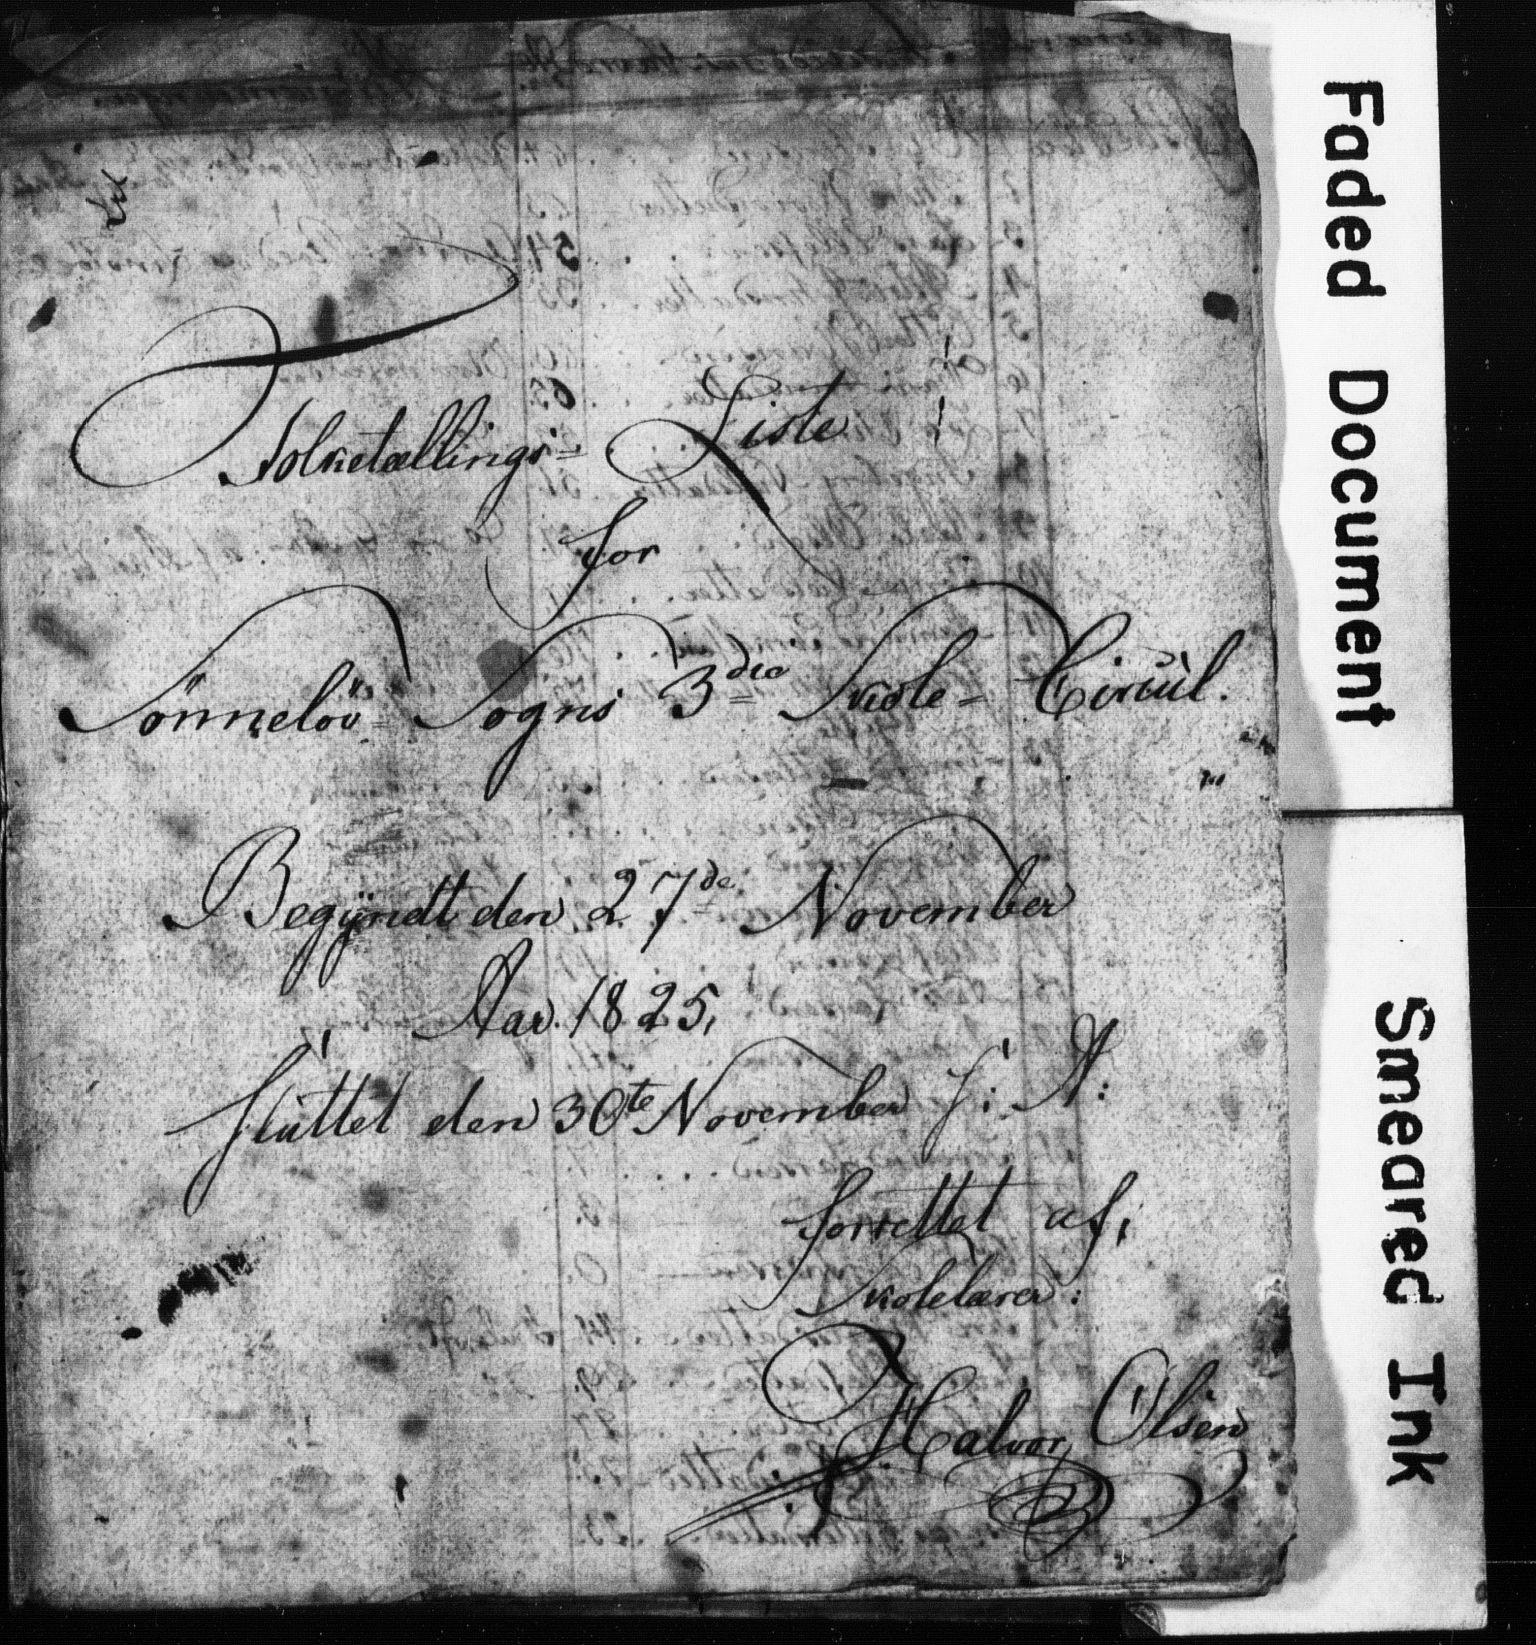 Folketællings- Liste
for
Sönneløv- Sogns 3die Skole- Circul.
Begÿndt den 27de November
Aar 1825,
sluttet den 30te November s: A:
forrettet af,
Skolelærer:
Halvor Olsen
Faded Document
Smeared Ink